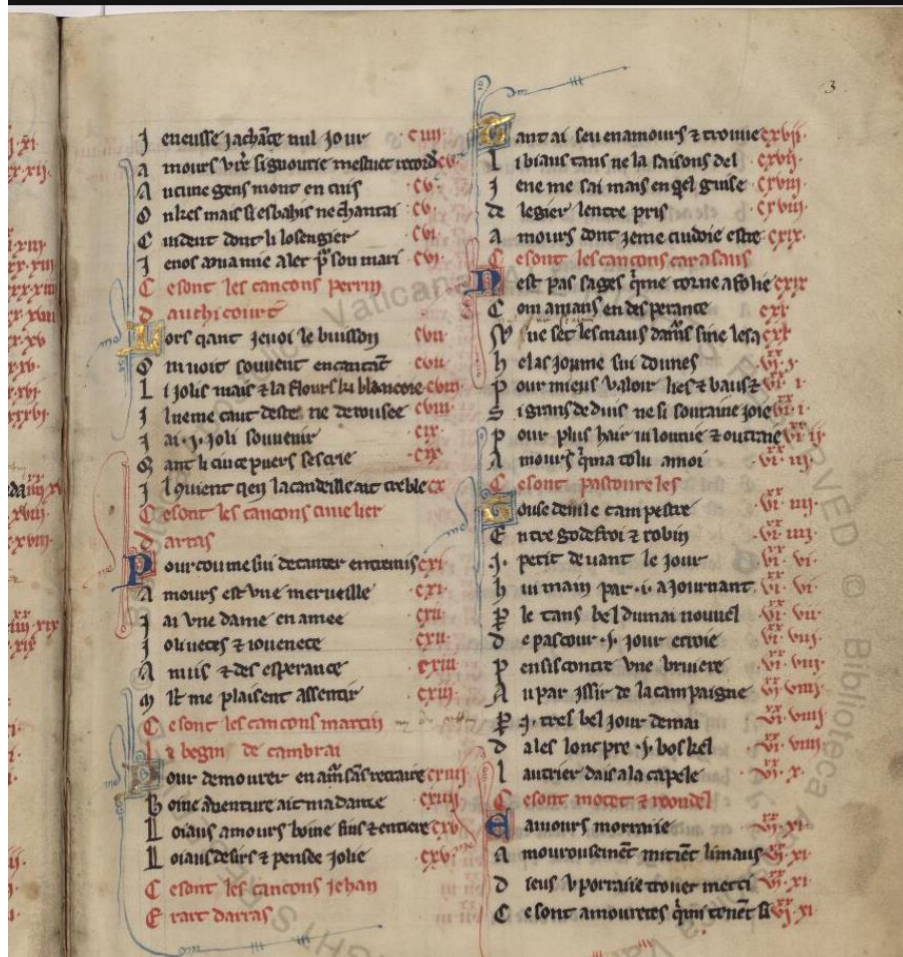 J eneusse ja chãce nul jour · ciiii·
A mours vrẽ signourie mestuet recordẽ cv·
A ucune gens mont en cuis · cv·
O nkes mais si esbahis ne chantai · cvi·
C uident dont li losengier · cvi·
J enos a vamie aler pᵒ sou mari · cvi·
C esont les cancons perrin
D auchicourt
L ors qant jeuoi le buisson · cvii·
O m uoit souuent en cantãt · cvii·
L i jolis mais z la flours ki blancoie cviii·
J l ueme caut deste ne de rousee cviii·
J ai · j · joli souuenir · cix·
Q ant li cincepuers sescrie · cix·
J l quient qen la candeille ait treble cx·
C esont les cancons cuuelier
d artas
P our cou me sui de canter entremis cxi·
A mours est vne merueille cxi·
J ai vne dame en amee cxii·
J oliuetes z iouenece cxii·
A muis z des esperance cxiii·
M lt me plaisent assentir · cxiii·
C esont les cancons martin
l e begin de cambrai
P our demourer en amᵒ sãs retraire cxiiii·
B oine auenture ait ma dame cxiiii·
L oiaus amours boine fins z entiere cxv·
L oiaus desirs z pensee jolie · cxv·
C esont les cancons jehan
E rart darras
3
Q ant ai seu en amours z trouue cxvij·
L i biaus tans ne la saisons del cxvij·
J ene me sai mais en qel guise cxviij·
de legier lentre pris · cxviij·
A mours dont jeme cuidoie estre cxix·
C esont les cancons carasaus
N est pas sages qime torne a folie cxix·
C om amans en desperance cxx·
h elas joume sui dounes
p our mieus valoir lies z baus z vi · i·
S i grans deduis ne si souraine joie vi · i·
p our plus hair
A mours qi ma tolu a moi · vi · iij·
C esont pastoureles
G ouse deuile campestre vi · iiij·
E ntre godefroi z robin vi · iiij·
J · petit deuant le jour · vi · vi·
h ui main par · i · ajournant vi · vi·
P le tans bel dumai nouuel vi · vii·
D e pascour · j · jour erroie vi · viij·
P ensis contre vne bruiere vi · viij·
A u par issir de la campaigne vi · viiij·
P j · tres bel jour de mai vi · viiij·
D ales lonc pre · j · boskel vi · viiij·
L autrier dais a la capele vi · x·
C esont motet z rondel
E amours morraie vi · xi·
A mourousemẽt mitiẽt limaus vi · xi·
D ieus v porraije trouer merci vi · xi·
C esont amouretes qimi tenẽt si vi · xi·